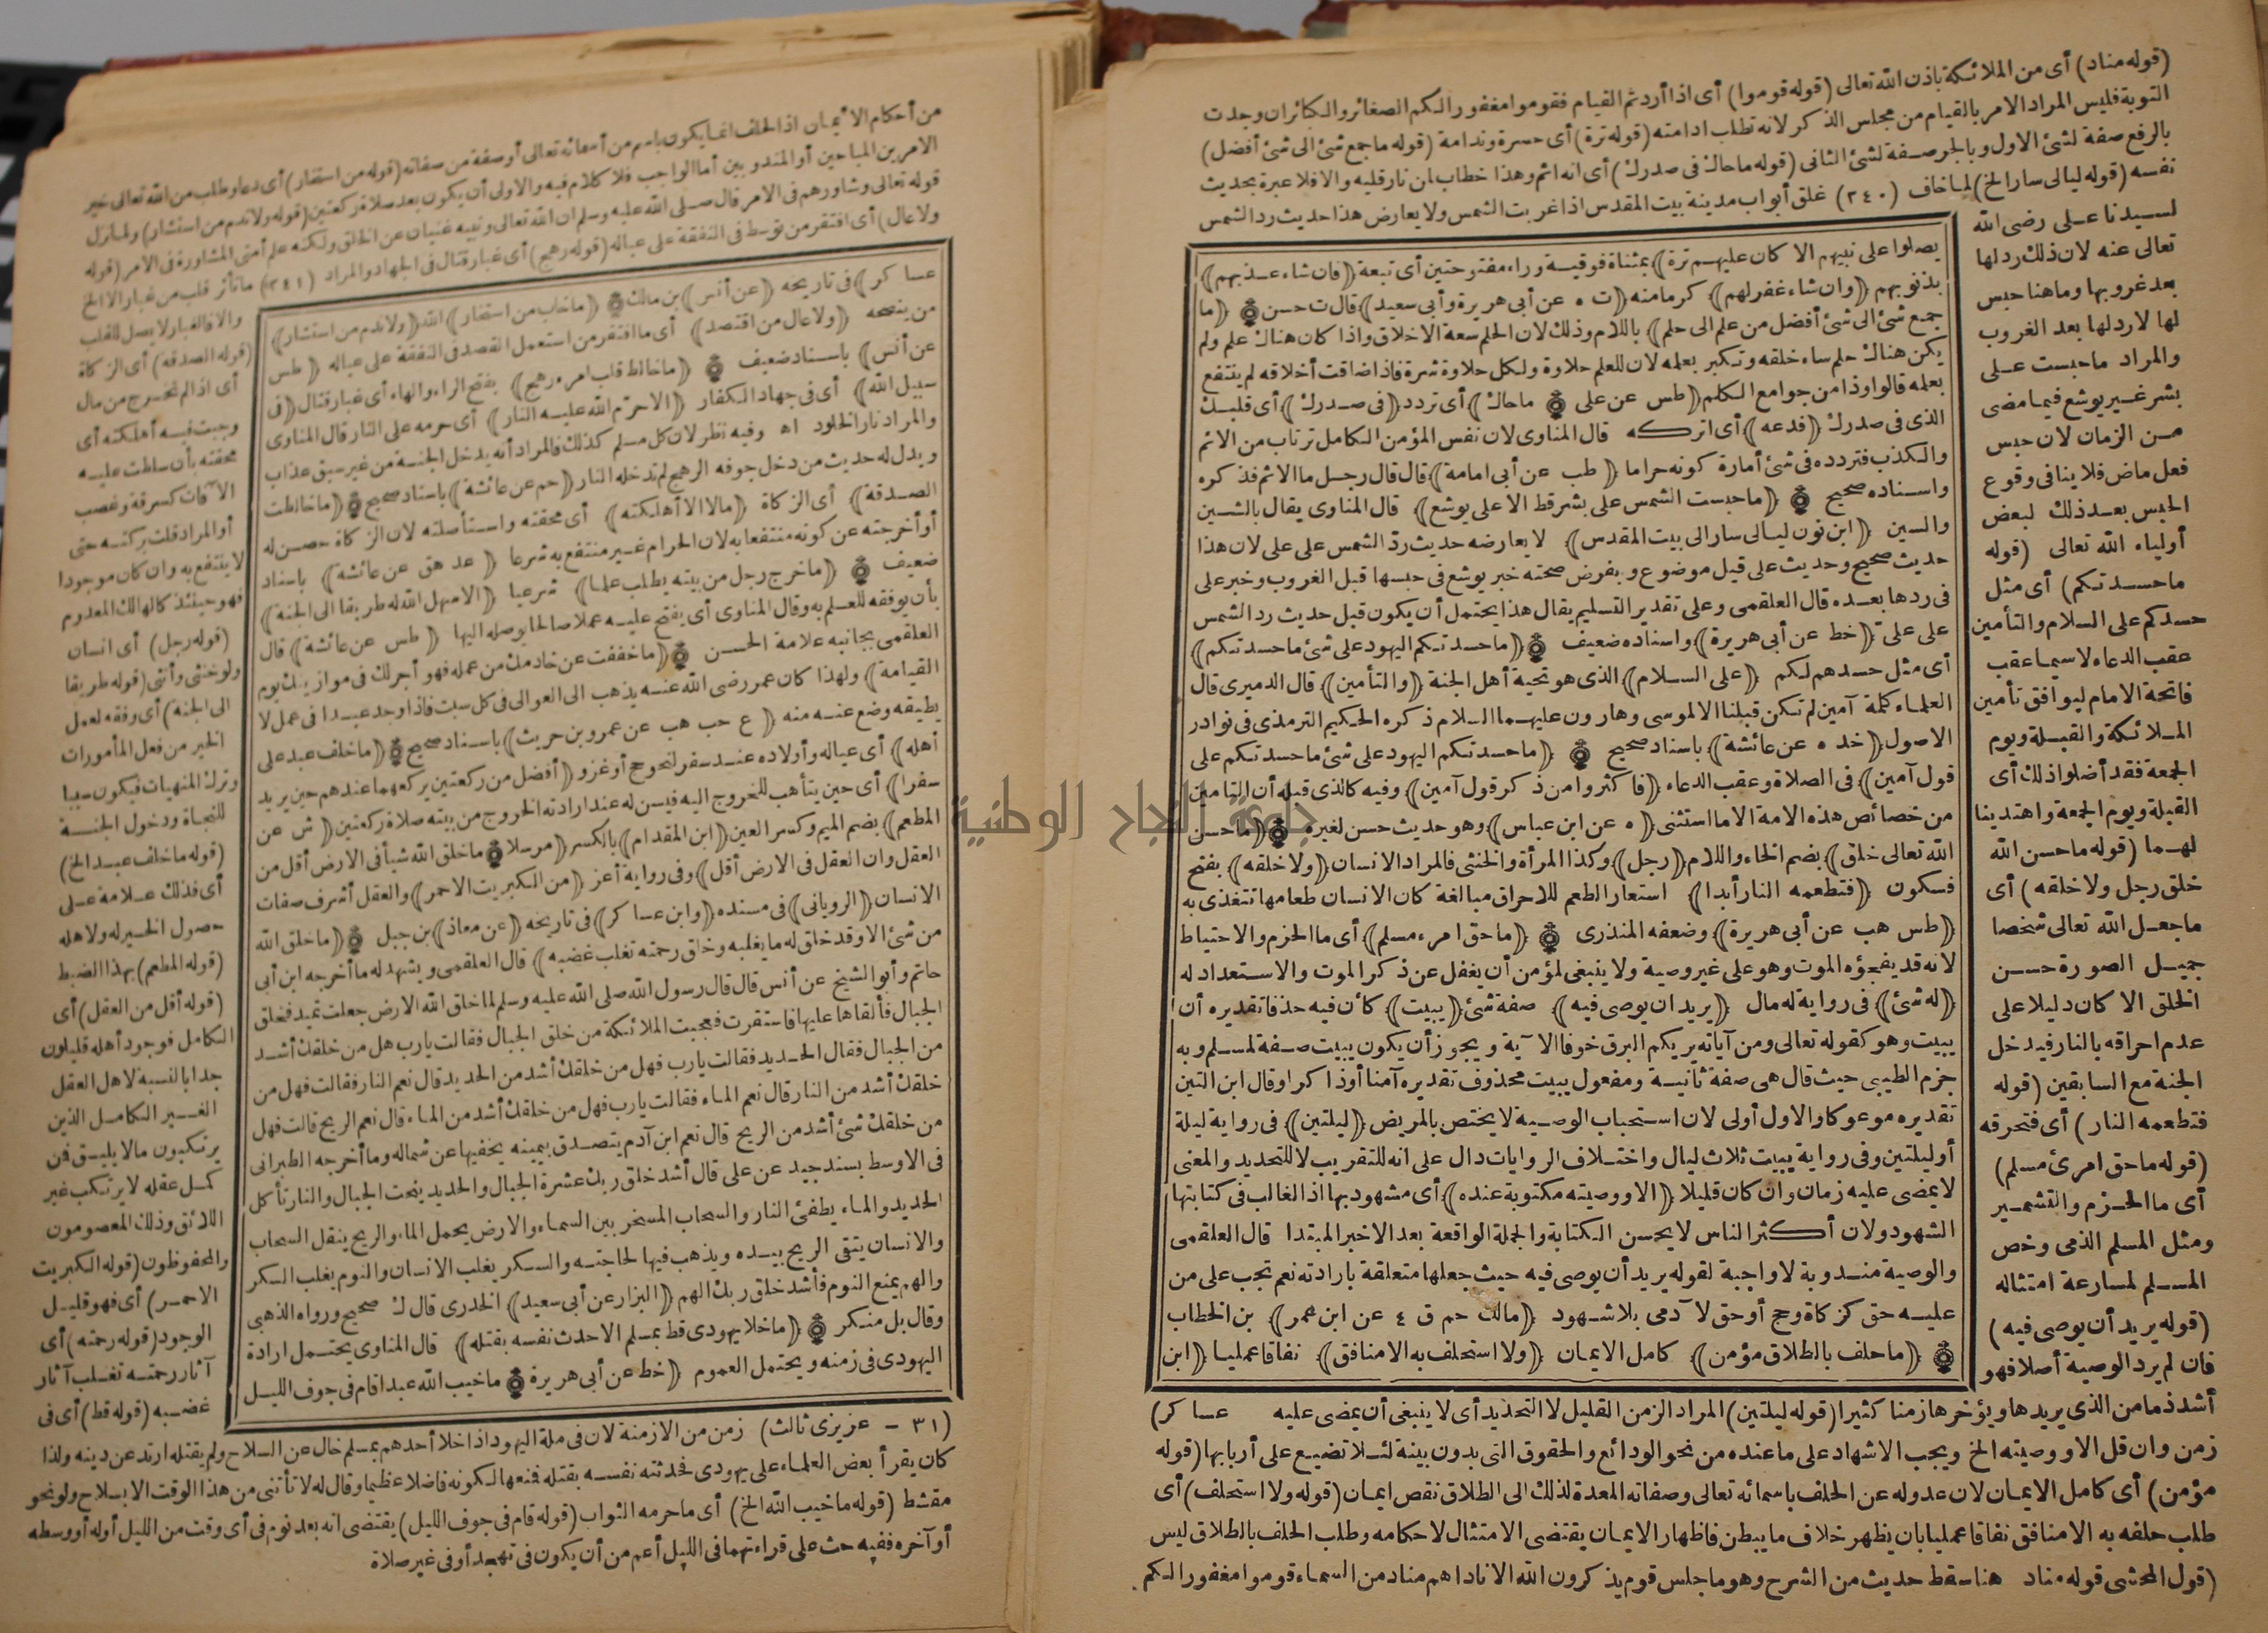 (قوله مناد) أى من الملائكة باذن الله تعالى (قوله قوموا) أى اذا أردتم القيام فقوموا مغفورا لكم الصغائر والكبائر ان وجدت
التوبة فليس المراد الامر بالقيام من مجلس الذكر لانه تطلب ادامته (قوله ترة) أى حسرة وندامة (قوله ما جمع شئ الى شئ أفضل)
بالرفع صفة لشئ الاول وبالجر صفة لشئ الثانى (قوله ما حاك فى صدرك) أى انه اثم وهذا خطاب لمن نار قلبه والا فلا عبرة بحديث
نفسه (قوله ليالى سار الخ) لما خاف (٢٤٠) غلق أبواب مدينة بيت المقدس اذا غربت الشمس ولا يعارض هذا حديث رد الشمس
لسيدنا على رضى الله
تعالى عنه لان ذلك رد لها
بعد غروبها وما هنا حبس
لها لا رد لها بعد الغروب
والمراد ما حبست على
بشر غير يوشع فيما مضى
من الزمان لان حبس
فعل ماض فلا ينافى وقوع
الحبس بعد ذلك لبعض
أولياء الله تعالى (قوله
ما حسدتكم) أى مثل
حسدكم على السلام والتأمين
عقب الدعاء لاسيما عقب
فاتحة الامام ليوافق تأمين
الملائكة والقبلة ويوم
الجمعة فقد أضلوا ذلك أى
القبلة ويوم الجمعة واهتدينا
لهما (قوله ما حسن الله
خلق رجل ولا خلقه) أى
ما جعل الله تعالى شخصا
جميل الصورة حسن
الخلق الا كان دليلا على
عدم احراقه بالنار فيدخل
الجنة مع السابقين (قوله
فتطعمه النار) أى فتحرقه
(قوله ما حق امرئ مسلم)
أى ما الحزم والتشمير
ومثل المسلم الذمى وخص
المسلم لمسارعة امتثاله
(قوله يريد أن يوصى فيه)
فان لم يرد الوصية أصلا فهو
يصلوا على نبيهم الا كان عليهم ترة) بمثناة فوقية وراء مفتوحتين أى تبعة (فان شاء عذبهم)
بذنوبهم (وان شاء غفر لهم) كرما منه (ت ه عن أبى هريرة وأبى سعيد) قال ت حسن (ما
جمع شئ الى شئ أفضل من علم الى حلم) باللام وذلك لان الحلم سعة الاخلاق واذا كان هناك علم ولم
يكن هناك حلم ساء خلقه وتكبر بعلمه لان للعلم حلاوة ولكل حلاوة شرة فاذا ضاقت أخلاقه لم ينتفع
بعلمه قالوا وذا من جوامع الكلم (طس عن على) ما حاك) أى تردد (فى صدرك) أى قلبك
الذى فى صدرك (فدعه) أى اتركه قال المناوى لان نفس المؤمن الكامل ترتاب من الاثم
والكذب فتردده فى شئ أمارة كونه حراما (طب عن أبى امامة) قال قال رجل ما الاثم فذكره
واسناده صحيح (ما حبست الشمس على بشر قط الا على يوشع) قال المناوى يقال بالشين
والسين (ابن نون ليالى سار الى بيت المقدس) لا يعارضه حديث رد الشمس على على لان هذا
حديث صحيح وحديث على قيل موضوع وبفرض صحته خبر يوشع فى حبسها قبل الغروب وخبر على
فى ردها بعده قال العلقمى وعلى تقدير التسليم يقال هذا يحتمل أن يكون قبل حديث رد الشمس
على على (خط عن أبى هريرة) واسناده ضعيف (ما حسدتكم اليهود على شئ ما حسدتكم)
أى مثل حسدهم لكم (على السلام) الذى هو تحية أهل الجنة (والتأمين) قال الدميرى قال
العلماء كلمة آمين لم تكن قبلنا الا لموسى وهارون عليهما السلام ذكره الحكيم الترمذى فى نوادر
الاصول (خد ه عن عائشة) باسناد صحيح (ما حسدتكم اليهود على شئ ما حسدتكم على
قول آمين) فى الصلاة وعقب الدعاء (فاكثروا من ذكر قول آمين) وفيه كالذى قبله أن التامين
من خصائص هذه الامة الا ما استثنى (ه عن ابن عباس) وهو حديث حسن لغيره (ما حسن
الله تعالى خلق) بضم الخاء واللام (رجل) وكذا المرأة والخنثى فالمراد الانسان (ولا خلقه) بفتح
فسكون (فتطعمه النار أبدا) استعار الطعم للاحراق مبالغة كان الانسان طعامها تتغذى به
(طس هب عن أبى هريرة) وضعفه المنذرى (ما حق امرء مسلم) أى ما الحزم والاحتياط
لانه قد يفجؤه الموت وهو على غير وصية ولا ينبغى لمؤمن أن يغفل عن ذكر الموت والاستعداد له
(له شئ) فى رواية له مال (يريد ان يوصى فيه) صفة شئ (يبيت) كأن فيه حذفا تقديره أن
يبيت وهو كقوله تعالى ومن آياته يريكم البرق خوفا الآية ويجوز أن يكون يبيت صفة لمسلم وبه
جزم الطيبى حيث قال هى صفة ثانية ومفعول يبيت محذوف تقديره آمنا أو ذاكرا وقال ابن التين
تقديره موعوكا والاول أولى لان استحباب الوصية لا يختص بالمريض (ليلتين) فى رواية ليلة
أو ليلتين وفى رواية يبيت ثلاث ليال واختلاف الروايات دال على انه للتقريب لا للتحديد والمعنى
لا يمضى عليه زمان وان كان قليلا (الا ووصيته مكتوبة عنده) أى مشهود بها اذ الغالب فى كتابتها
الشهود ولان أكثر الناس لا يحسن الكتابة والجملة الواقعة بعد الا خبر المبتدا قال العلقمى
والوصية مندوبة لا واجبة لقوله يريد أن يوصى فيه حيث جعلها متعلقة بارادته نعم تجب على من
عليه حق كزكاة وحج أو حق لآدمى بلا شهود (مالك حم ق ٤ عن ابن عمر) بن الخطاب
(ما حلف بالطلاق مؤمن) كامل الايمان (ولا استحلف به الا منافق) نفاقا عمليا (ابن
أشد ذما من الذى يريدها ويؤخرها زمنا كثيرا (قوله ليلتين) المراد الزمن القليل لا التحديد أى لا ينبغى أن يمضى عليه عساكر)
زمن وان قل الا ووصيته الخ ويجب الاشهاد على ما عنده من نحو الودائع والحقوق التى بدون بينة لئلا تضيع على أربابها (قوله
مؤمن) أى كامل الايمان لان عدوله عن الحلف باسمائه تعالى وصفاته المعدة لذلك الى الطلاق نقص ايمان (قوله ولا استحلف) أى
طلب حلفه به الا منافق نفاقا عمليا بان يظهر خلاف ما يبطن فاظهار الايمان يقتضى الامتثال لاحكامه وطلب الحلف بالطلاق ليس
(قول المحشى قوله مناد هنا سقط حديث من الشرح وهو ما جلس قوم يذكرون الله الا ناداهم مناد من السماء قوموا مغفورا لكم
من أحكام الايمان اذ الحلف انما يكون باسم من أسمائه تعالى أو صفة من صفاته (قوله من استخار) أى دعا وطلب من الله تعالى خير
الامرين المباحين أو المندوبين أما الواجب فلا كلام فيه والاولى أن يكون بعد صلاة ركعتين (قوله ولا ندم من استشار) ولما نزل
قوله تعالى وشاورهم فى الامر قال صلى الله عليه وسلم ان الله تعالى ونبيه غنيان عن الخلق ولكنه علم أمتى المشاورة فى الامر (قوله
ولا عال) أى افتقر من توسط فى النفقة على عياله (قوله رهج) أى غبار قتال فى الجهاد والمراد (٢٤١) ما تأثر قلب من غبار الا الخ
عساكر) فى تاريخه (عن أنس) بن مالك (ما خاب من استخار) الله (ولا ندم من استشار)
من ينصحه (ولا عال من اقتصد) أى ما افتقر من استعمل القصد فى النفقة على عياله (طس
عن أنس) باسناد ضعيف (ما خالط قلب امرء رهج) بفتح الراء والهاء أى غبار قتال (فى
سبيل الله) أى فى جهاد الكفار (الا حرم الله عليه النار) أى حرمه على النار قال المناوى
والمراد نار الخلود اه وفيه نظر لان كل مسلم كذلك فالمراد أنه يدخل الجنة من غير سبق عذاب
ويدل له حديث من دخل جوفه الرهج لم تدخله النار (حم عن عائشة) باسناد صحيح (ما خالطت
الصدقة) أى الزكاة (مالا الا أهلكته) أى محقته واستأصلته لان الزكاة حصن له
أو أخرجته عن كونه منتفعا به لان الحرام غير منتفع به شرعا (عد هق عن عائشة) باسناد
ضعيف (ما خرج رجل من بيته يطلب علما) شرعيا (الا سهل الله له طريقا الى الجنة)
بأن يوفقه للعلم به وقال المناوى أى يفتح عليه عملا صالحا يوصله اليها (طس عن عائشة) قال
العلقمى بجانبه علامة الحسن (ما خففت عن خادمك من عمله فهو أجر لك فى موازينك يوم
القيامة) ولهذا كان عمر رضى الله عنه يذهب الى العوالى فى كل سبت فاذا وجد عبدا فى عمل لا
يطيقه وضع عنه منه (ع حب هب عن عمرو بن حريث) باسناد صحيح (ما خلف عبد على
أهله) أى عياله وأولاده عند سفر لنحو حج أو غزو (أفضل من ركعتين يركعهما عندهم حين يريد
سفرا) أى حين يتأهب للخروج اليه فيسن له عند ارادته الخروج من بيته صلاة ركعتين (ش عن
المطعم) بضم الميم وكسر العين (ابن المقدام) بالكسر (مرسلا ما خلق الله شيأ فى الارض أقل من
العقل وان العقل فى الارض أقل) وفى رواية أعز (من الكبريت الاحمر) والعقل أشرف صفات
الانسان (الرويانى) فى مسنده (وابن عساكر) فى تاريخه (عن معاذ) بن جبل (ما خلق الله
من شئ الا وقد خلق له ما يغلبه وخلق رحمته تغلب غضبه) قال العلقمى ويشهد له ما أخرجه ابن أبى
حاتم وأبو الشيخ عن أنس قال قال رسول الله صلى الله عليه وسلم لما خلق الله الارض جعلت تميد فخلق
الجبال فألقاها عليها فاستقرت فعجبت الملائكة من خلق الجبال فقالت يارب هل من خلقك أشد
من الجبال فقال الحديد فقالت يارب فهل من خلقك أشد من الحديد قال نعم النار فقالت فهل من
خلقك أشد من النار قال نعم الماء فقالت يارب فهل من خلقك أشد من الماء قال نعم الريح قالت فهل
من خلقك شئ أشد من الريح قال نعم ابن آدم يتصدق بيمينه يخفيها عن شماله وما أخرجه الطبرانى
فى الاوسط بسند جيد عن على قال أشد خلق ربك عشرة الجبال والحديد ينحت الجبال والنار تأكل
الحديد والماء يطفئ النار والسحاب المسخر بين السماء والارض يحمل الماء والريح ينقل السحاب
والانسان يتقى الريح بيده ويذهب فيها لحاجته والسكر يغلب الانسان والنوم يغلب السكر
والهم يمنع النوم فأشد خلق ربك الهم (البزار عن أبى سعيد) الخدرى قال ك صحيح ورواه الذهبى
وقال بل منكر (ما خلا يهودى قط بمسلم الا حدث نفسه بقتله) قال المناوى يحتمل ارادة
اليهودى فى زمنه ويحتمل العموم (خط عن أبى هريرة ما خيب الله عبدا قام فى جوف الليل
والا فالغبار لا يصل للقلب
(قوله الصدقة) أى الزكاة
أى اذا لم تخرج من مال
وجبت فيه أهلكته أى
محقته بأن سلطت عليه
الآفات كسرقة وغصب
أو المراد قلت بركته حتى
لا ينتفع به وان كان موجودا
فهو حينئذ كالهالك المعدوم
(قوله رجل) أى انسان
ولو خنثى وأنثى (قوله طريقا
الى الجنة) أى وفقه لعمل
الخير من فعل المأمورات
وترك المنهيات فيكون سببا
للنجاة ودخول الجنة
(قوله ما خلف عبد الخ)
أى فذلك علامة على
حصول الخير له ولاهله
(قوله المطعم) بهذا الضبط
(قوله أقل من العقل) أى
الكامل فوجود أهله قليلون
جدا بالنسبة لاهل العقل
الغير الكامل الذين
يرتكبون ما لا يليق فمن
كمل عقله لا يرتكب غير
اللائق وذلك المعصومون
والمحفوظون (قوله الكبريت
الاحمر) أى فهو قليل
الوجود (قوله رحمته) أى
آثار رحمته تغلب آثار
غضبه (قوله قط) أى فى
(٣١ - عزيزى ثالث) زمن من الازمنة لان فى ملة اليهود اذا خلا أحدهم بمسلم خال عن السلاح ولم يقتله ارتد عن دينه ولذا
كان يقرأ بعض العلماء على يهودى فحدثته نفسه بقتله فمنعها لكونه فاضلا عظيما وقال له لا تأتنى من هذا الوقت الا بسلاح ولو نحو
مقشط (قوله ما خيب الله الخ) أى ما حرمه الثواب (قوله قام فى جوف الليل) يقتضى انه بعد نوم فى أى وقت من الليل أوله أو وسطه
أو آخره ففيه حث على قراءتهما فى الليل أعم من أن يكون فى تهجد أو فى غير صلاة
جامعة النجاح الوطنية